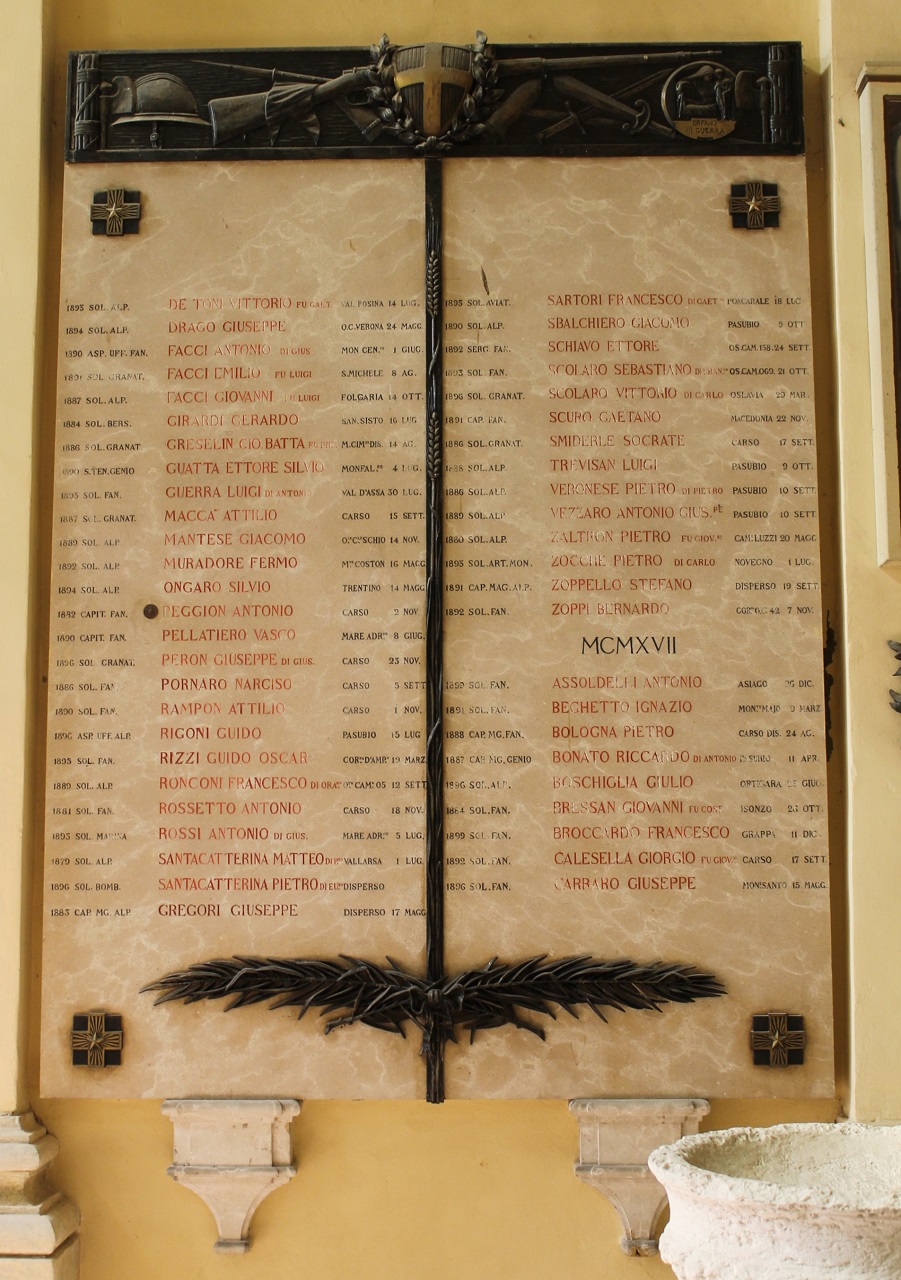 ORFANI
DI GUERRA
1895 SOL. ALP. DE TONI VITTORIO FU GAET. VAL POSINA 14 LUG.
1894 SOL. ALP. DRAGO GIUSEPPE O.C. VERONA 24 MAGG.
1890 ASP. UFF. FAN. FACCI ANTONIO DI GIUS. MON CEN.º 1 GIUG.
SOL. GRANAT. FACCI EMILIO FU LUIGI S. MICHELE 8 AG.
1887 SOL. ALP. FACCI GIOVANNI FU LUIGI FOLGARIA 14 OTT.
1884 SOL. BERS. GIRARDI GERARDO SAN. SISTO 16 LUG.
1886 SOL. GRANAT GRESELIN GIO. BATTA M. CIM.º DIS. 14 AG.
1890 S. TEN. GENIO GUATTA ETTORE SILVIO MONFAL.ⁿᵉ 4 LUG.
1895 SOL. FAN. GUERRA LUIGI DI ANTONIO VAL D'ASSA 30 LUG.
1887 SOL. GRANAT. MACCA' ATTILIO CARSO 15 SETT.
1889 SOL. ALP. MANTESE GIACOMO O.ᵉ C.º SCHIO 14 NOV.
1892 SOL. ALP. MURADORE FERMO M.ᵗᵉ COSTON 16 MAGG.
1894 SOL. ALP. ONGARO SILVIO TRENTINO 14 MAGG.
1882 CAPIT. FAN. PEGGION ANTONIO CARSO 2 NOV.
1890 CAPIT. FAN. PELLATIERO VASCO MARE ADR.ᶜᵒ 8 GIUG.
1896 SOL. GRANAT. PERON GIUSEPPE DI GIUS. CARSO 23 NOV.
1886 SOL. FAN. PORNARO NARCISO CARSO 5 SETT.
1890 SOL. FAN. RAMPON ATTILIO CARSO 1 NOV.
1896 ASP. UFF. ALP. RIGONI GUIDO PASUBIO 15 LUG
1895 SOL. FAN. RIZZI GUIDO OSCAR COR.ᵈ D'AMP.º 19 MARZ.
1889 SOL. ALP. RONCONI FRANCESCO CAM. 05 12 SETT.
1881 SOL. FAN. ROSSETTO ANTONIO CARSO 18 NOV.
1895 SOL. MARINA ROSSI ANTONIO DI GIUS. MARE ADR.ᶜᵒ 5 LUG.
1879 SOL. ALP. SANTACATTERINA MATTEO VALLARSA 1 LUG.
1896 SOL. BOMB. SANTACATTERINA PIETRO DISPERSO
1885 CAP. MG. ALP. GREGORI GIUSEPPE DISPERSO 17 MAGG.
1895 SOL. AVIAT. SARTORI FRANCESCO DI GAET.ⁿᵒ PONCARALE 18 LUG
1890 SOL. ALP. SBALCHIERO GIACOMO PASUBIO 9 OTT
1892 SERG. FAN. SCHIAVO ETTORE OS. CAM. 158. 24 SETT.
1893 SOL. FAN. SCOLARO SEBASTIANO OS. CAM. 069. 21 OTT.
1896 SOL. GRANAT. SCOLARO VITTORIO DI CARLO OSLAVIA 29 MAR.
1891 CAP. FAN. SCURO GAETANO MACEDONIA 22 NOV.
1886 SOL. GRANAT. SMIDERLE SOCRATE CARSO 17 SETT.
SOL. ALP. TREVISAN LUIGI PASUBIO 9 OTT.
1886 SOL. ALP. VERONESE PIETRO DI PIETRO PASUBIO 10 SETT.
1889 SOL. ALP. VEZZARO ANTONIO GIUS.ᵖᵉ PASUBIO 10 SETT.
1880 SOL. ALP. ZALTRON PIETRO FU GIOV.ⁿⁱ CAM. LUZZI 20 MAGG
1895 SOL. ART. MON. ZOCCHE PIETRO DI CARLO NOVEGNO 1 LUG.
1891 CAP. MAG. ALP. ZOPPELLO STEFANO DISPERSO 19 SETT.
1892 SOL. FAN. ZOPPI BERNARDO 42 7 NOV.
MCMXVII
1899 SOL. FAN. ASSOLDELLI ANTONIO ASIAGO 26 DIC.
1891 SOL. FAN. BEGHETTO IGNAZIO MON.ᵗᵉ MAJO 9 MARZ
1888 CAP. MG. FAN. BOLOGNA PIETRO CARSO DIS. 24 AG.
1887 CAP. MG. GENIO BONATO RICCARDO DI ANTONIO PASUBIO 11 APR.
1896 SOL. ALP. BOSCHIGLIA GIULIO ORTIGARA GIUG.
1884 SOL. FAN. BRESSAN GIOVANNI ISONZO 26 OTT.
1899 SOL. FAN. BROCCARDO FRANCESCO GRAPPA 11 DIC.
1892 SOL. FAN. CALESELLA GIORGIO FU GIOV.ⁿⁱ CARSO 17 SETT.
1896 SOL. FAN. CARRARO GIUSEPPE MON. SANTO 15 MAGG.